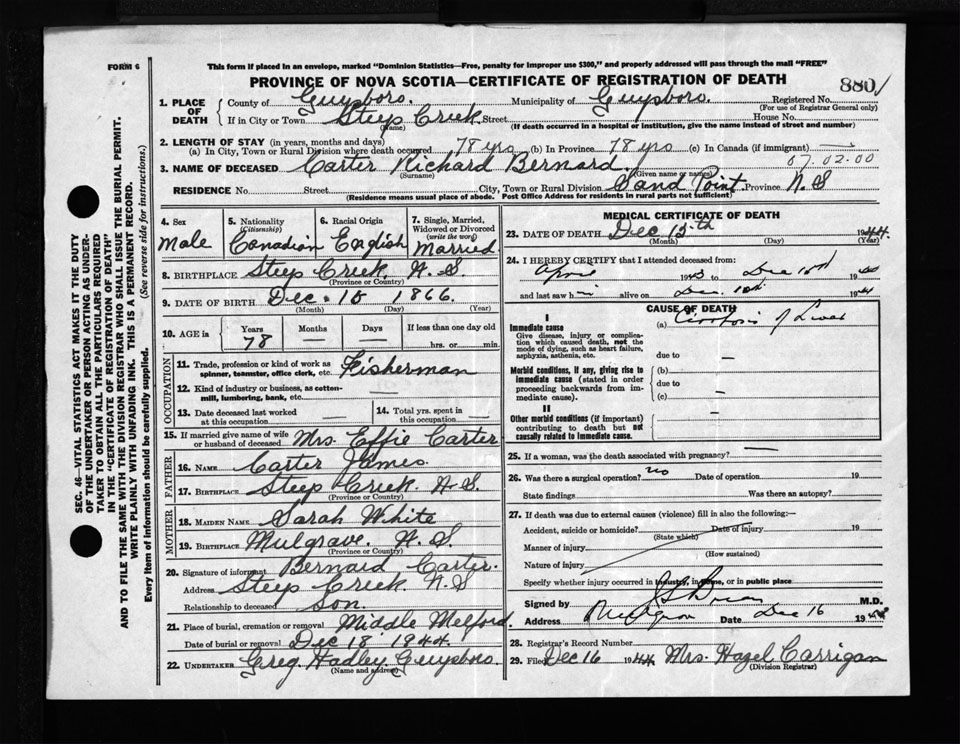 FORM 6
This form if placed in an envelope, marked "Dominion Statistics—Free, penalty for improper use $300," and properly addressed will pass through the mail "FREE"
PROVINCE OF NOVA SCOTIA—CERTIFICATE OF REGISTRATION OF DEATH
880/
1. PLACE OF DEATH County of Guysboro. Municipality of Guysboro. Registered No.
(For use of Registrar General only)
If in City or Town Steep Creek. Street House No.
(Name) (If death occurred in a hospital or institution, give the name instead of street and number)
2. LENGTH OF STAY (in years, months and days)
(a) In City, Town or Rural Division where death occurred 78 yrs (b) In Province 78 yrs (c) In Canada (if immigrant) —
07.02.00
3. NAME OF DECEASED Carter Richard Bernard.
(Surname) (Given name or names)
RESIDENCE No. Street City, Town or Rural Division Sand Point. Province N.S
(Residence means usual place of abode. Post Office Address for residents in rural parts not sufficient)
4. Sex Male
5. Nationality (Citizenship) Canadian
6. Racial Origin English
7. Single, Married, Widowed or Divorced (write the word) Married
8. BIRTHPLACE Steep Creek. N.S.
(Province or Country)
9. DATE OF BIRTH Dec. 15 1866.
(Month) (Day) (Year)
10. AGE in Years Months Days If less than one day old
78 — — hrs. or min.
OCCUPATION
11. Trade, profession or kind of work as spinner, teamster, office clerk, etc. Fisherman
12. Kind of industry or business, as cotton-mill, lumbering, bank, etc. —
13. Date deceased last worked at this occupation —
14. Total yrs. spent in this occupation —
15. If married give name of wife or husband of deceased Mrs. Effie Carter
FATHER
16. NAME Carter James.
17. BIRTHPLACE Steep Creek N.S.
(Province or Country)
MOTHER
18. MAIDEN NAME Sarah White
19. BIRTHPLACE Mulgrave. N.S.
(Province or Country)
20. Signature of informant Bernard Carter.
Address Steep Creek N.S
Relationship to deceased Son.
21. Place of burial, cremation or removal Middle Melford.
Date of burial or removal Dec 18 1944
22. UNDERTAKER Greg. Hadley Guysboro.
(Name and address)
MEDICAL CERTIFICATE OF DEATH
23. DATE OF DEATH Dec 15th 1944.
(Month) (Day) (Year)
24. I HEREBY CERTIFY that I attended deceased from:
April 1943 to Dec 19
and last saw h alive on Dec. 1944
CAUSE OF DEATH
I
Immediate cause
Give disease, injury or complication which caused death, not the mode of dying, such as heart failure, asphyxia, asthenia, etc.
(a) Cirrhosis of Liver
due to —
Morbid conditions, if any, giving rise to immediate cause (stated in order proceeding backwards from immediate cause)
(b)
due to —
(c)
II
Other morbid conditions (if important) contributing to death but not causally related to immediate cause. —
25. If a woman, was the death associated with pregnancy? —
26. Was there a surgical operation? no Date of operation 19
State findings Was there an autopsy?
27. If death was due to external causes (violence) fill in also the following:—
Accident, suicide or homicide? Date of injury 19
(State which)
Manner of injury
(How sustained)
Nature of injury
Specify whether injury occurred in industry, in home, or in public place
Signed by M.D.
Address Date Dec 16 19
28. Registrar's Record Number
29. Filed Dec 16 1944 Mrs. Hazel Carrigan
(Division Registrar)
SEC. 46—VITAL STATISTICS ACT MAKES IT THE DUTY
OF THE UNDERTAKER OR PERSON ACTING AS UNDER-
TAKER TO OBTAIN ALL THE PARTICULARS REQUIRED
IN THE "CERTIFICATE OF REGISTRATION OF DEATH"
AND TO FILE THE SAME WITH THE DIVISION REGISTRAR WHO SHALL ISSUE THE BURIAL PERMIT.
WRITE PLAINLY WITH UNFADING INK. THIS IS A PERMANENT RECORD.
Every item of information should be carefully supplied. (See reverse side for instructions.)